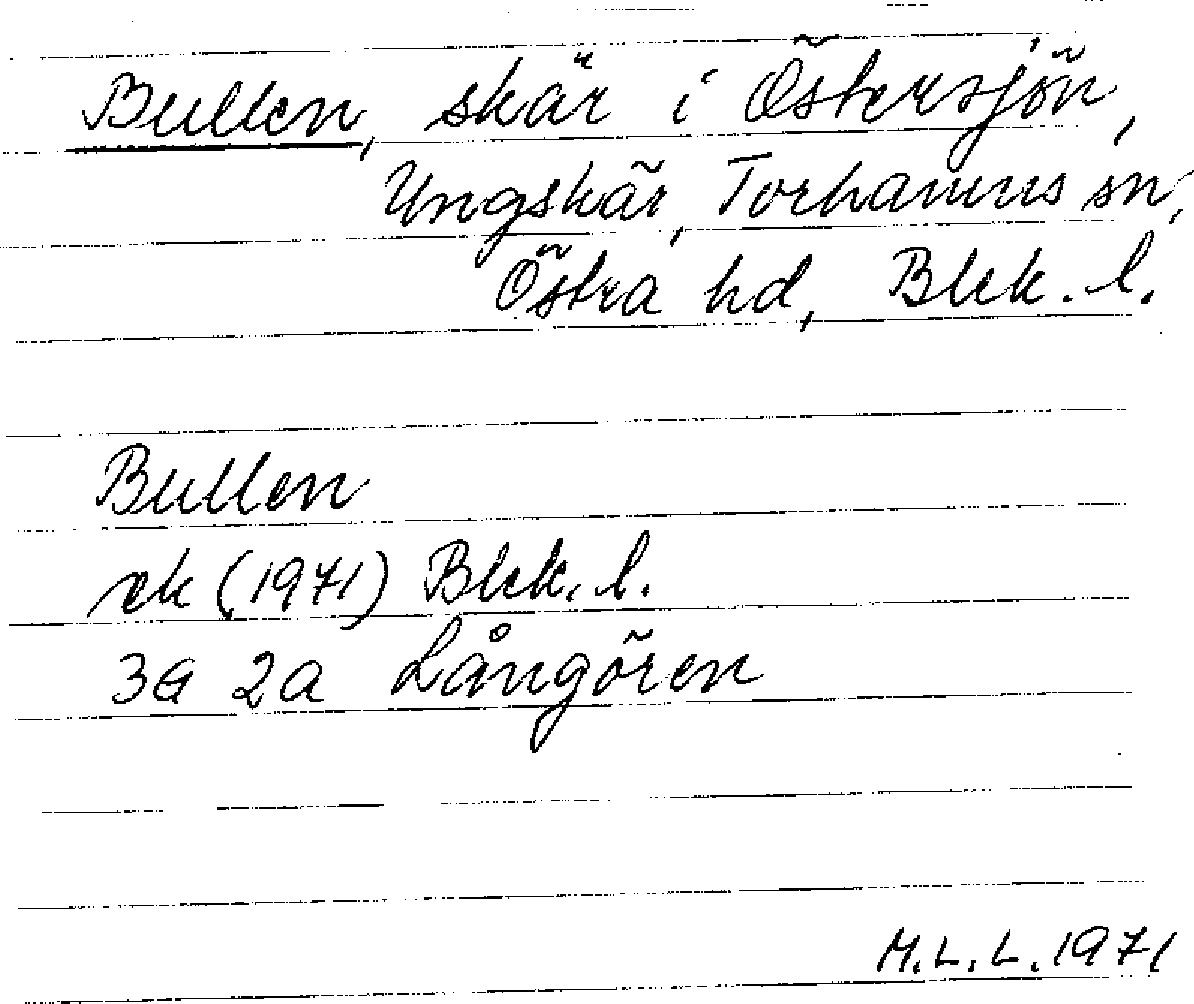 Bullen, skär i Östersjön,
Ungskär, Torhamns sn,
Östra hd, Blek. l.
Bullen
ek (1971) Blek. l.
3G 2a Långören
M.L.L. 1971